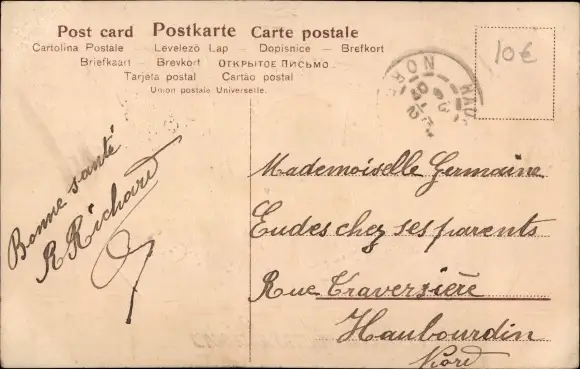 Post card Postkarte Carte postale
Cartolina Postale – Levelező Lap – Dopisnice – Brefkort
Briefkaart – Brevkort – Открытое письмо.
Tarjeta postal – Cartão postal
Union postale Universelle.
10€
Bonne santé
R Richard
Mademoiselle Germaine
Eudes chez ses parents
Rue Traversière
Haubourdin
Nord